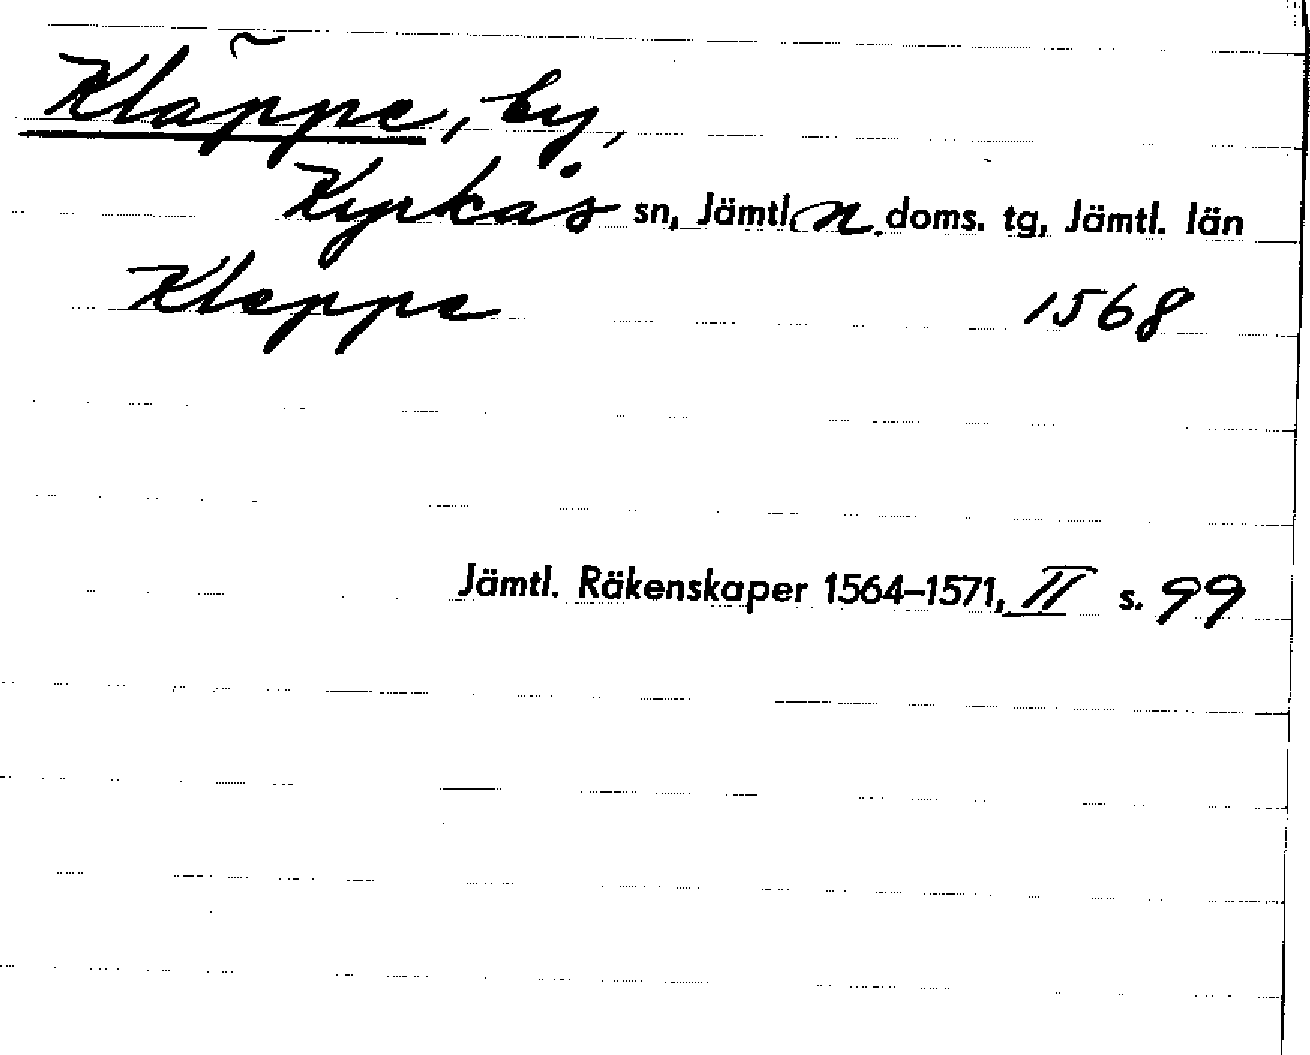 Kläppe, by,
Kyrkås sn, Jämtl. n. doms. tg, Jämtl. län
Kleppe 1568
Jämtl. Räkenskaper 1564–1571, II s. 99